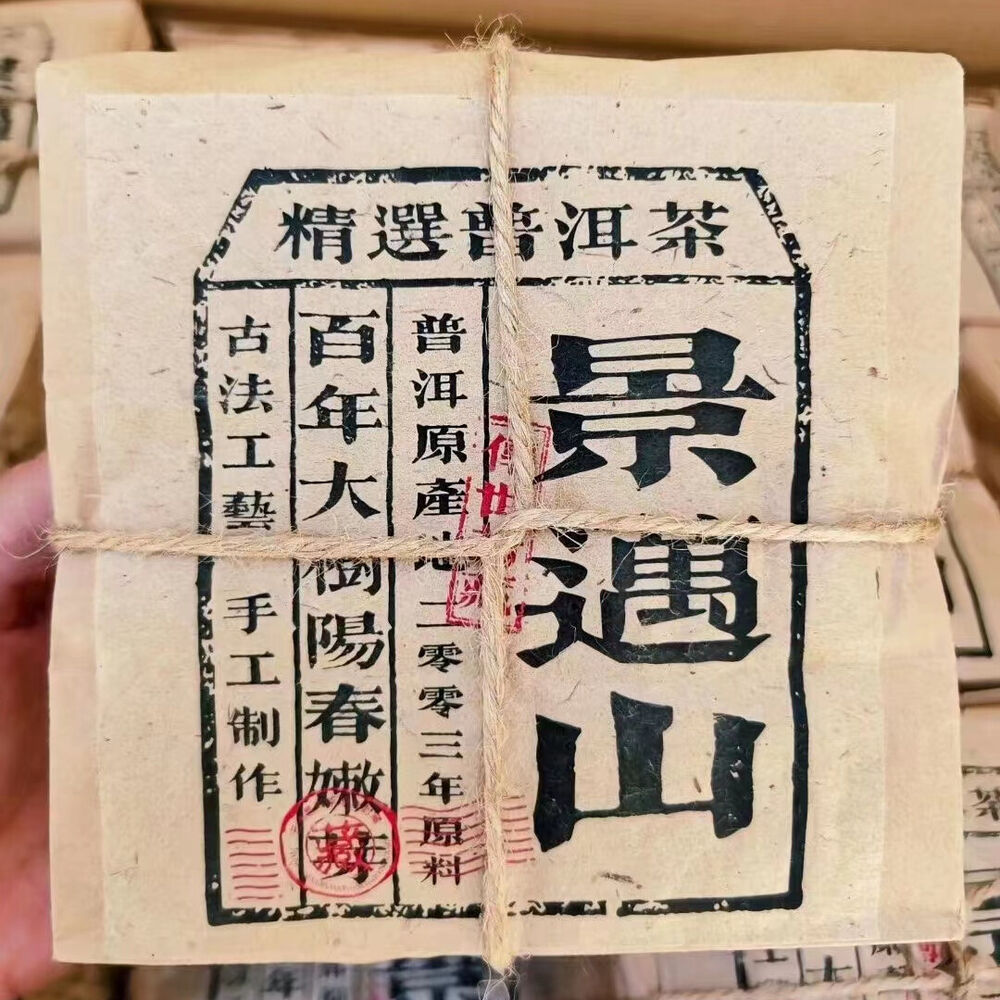 精選普洱茶
景遇山
普洱原產地二零零三年原料
百年大樹陽春嫩芽
古法工藝 手工制作
藏